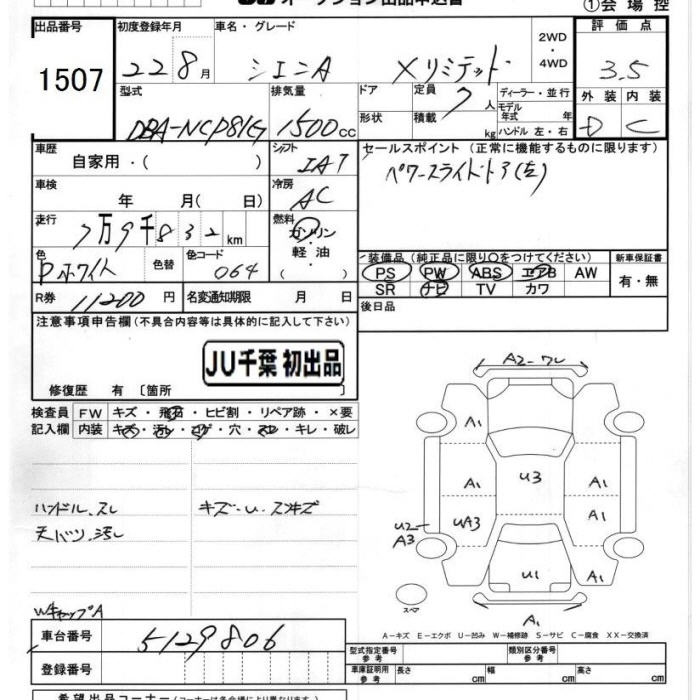 ①会場控
出品番号 初度登録年月 車名・グレード 2WD ・ 4WD 評価点
1507 22 8月 シエンA Xリミテッド 3.5
型式 排気量 ドア 定員 7人 ディーラー・並行 外装 内装
DBA-NCP81G 1500cc 形状 積載 kg モデル年式 年 ハンドル 左・右 D C
車歴 自家用・( ) シフト IAT セールスポイント (正常に機能するものに限ります)
車検 年 月( 日) 冷房 AC パワースライドドア(左)
走行 7万9千832km 燃料 ガソリン・軽油・( )
色 Pホワイト 色替 色コード 064 装備品 (純正品に限り○をつけてください) 新車保証書
PS PW ABS エアB AW 有・無
SR ナビ TV カワ
R券 11200円 名変通知期限 月 日 後日品
注意事項申告欄 (不具合内容等は具体的に記入して下さい)
JU千葉 初出品
修復歴 有 〔箇所 〕
検査員 FW キズ・飛石・ヒビ割・リペア跡・×要
記入欄 内装 キズ・汚レ・コゲ・穴・スレ・キレ・破レ
ハンドル、スレ キズ・U・スリキズ
天バリ、汚レ
WキャップA
A2-ワレ
A1
U3
A1 A1
UA3 A1
U2-A3
U1 A1
スペア A1
A-キズ E-エクボ U-凹み W-補修跡 S-サビ C-腐食 XX-交換済
車台番号 5129806 型式指定番号 参考 類別区分番号 参考
登録番号 車庫証明用 参考 長さ cm 幅 cm 高さ cm
希望出品コーナー